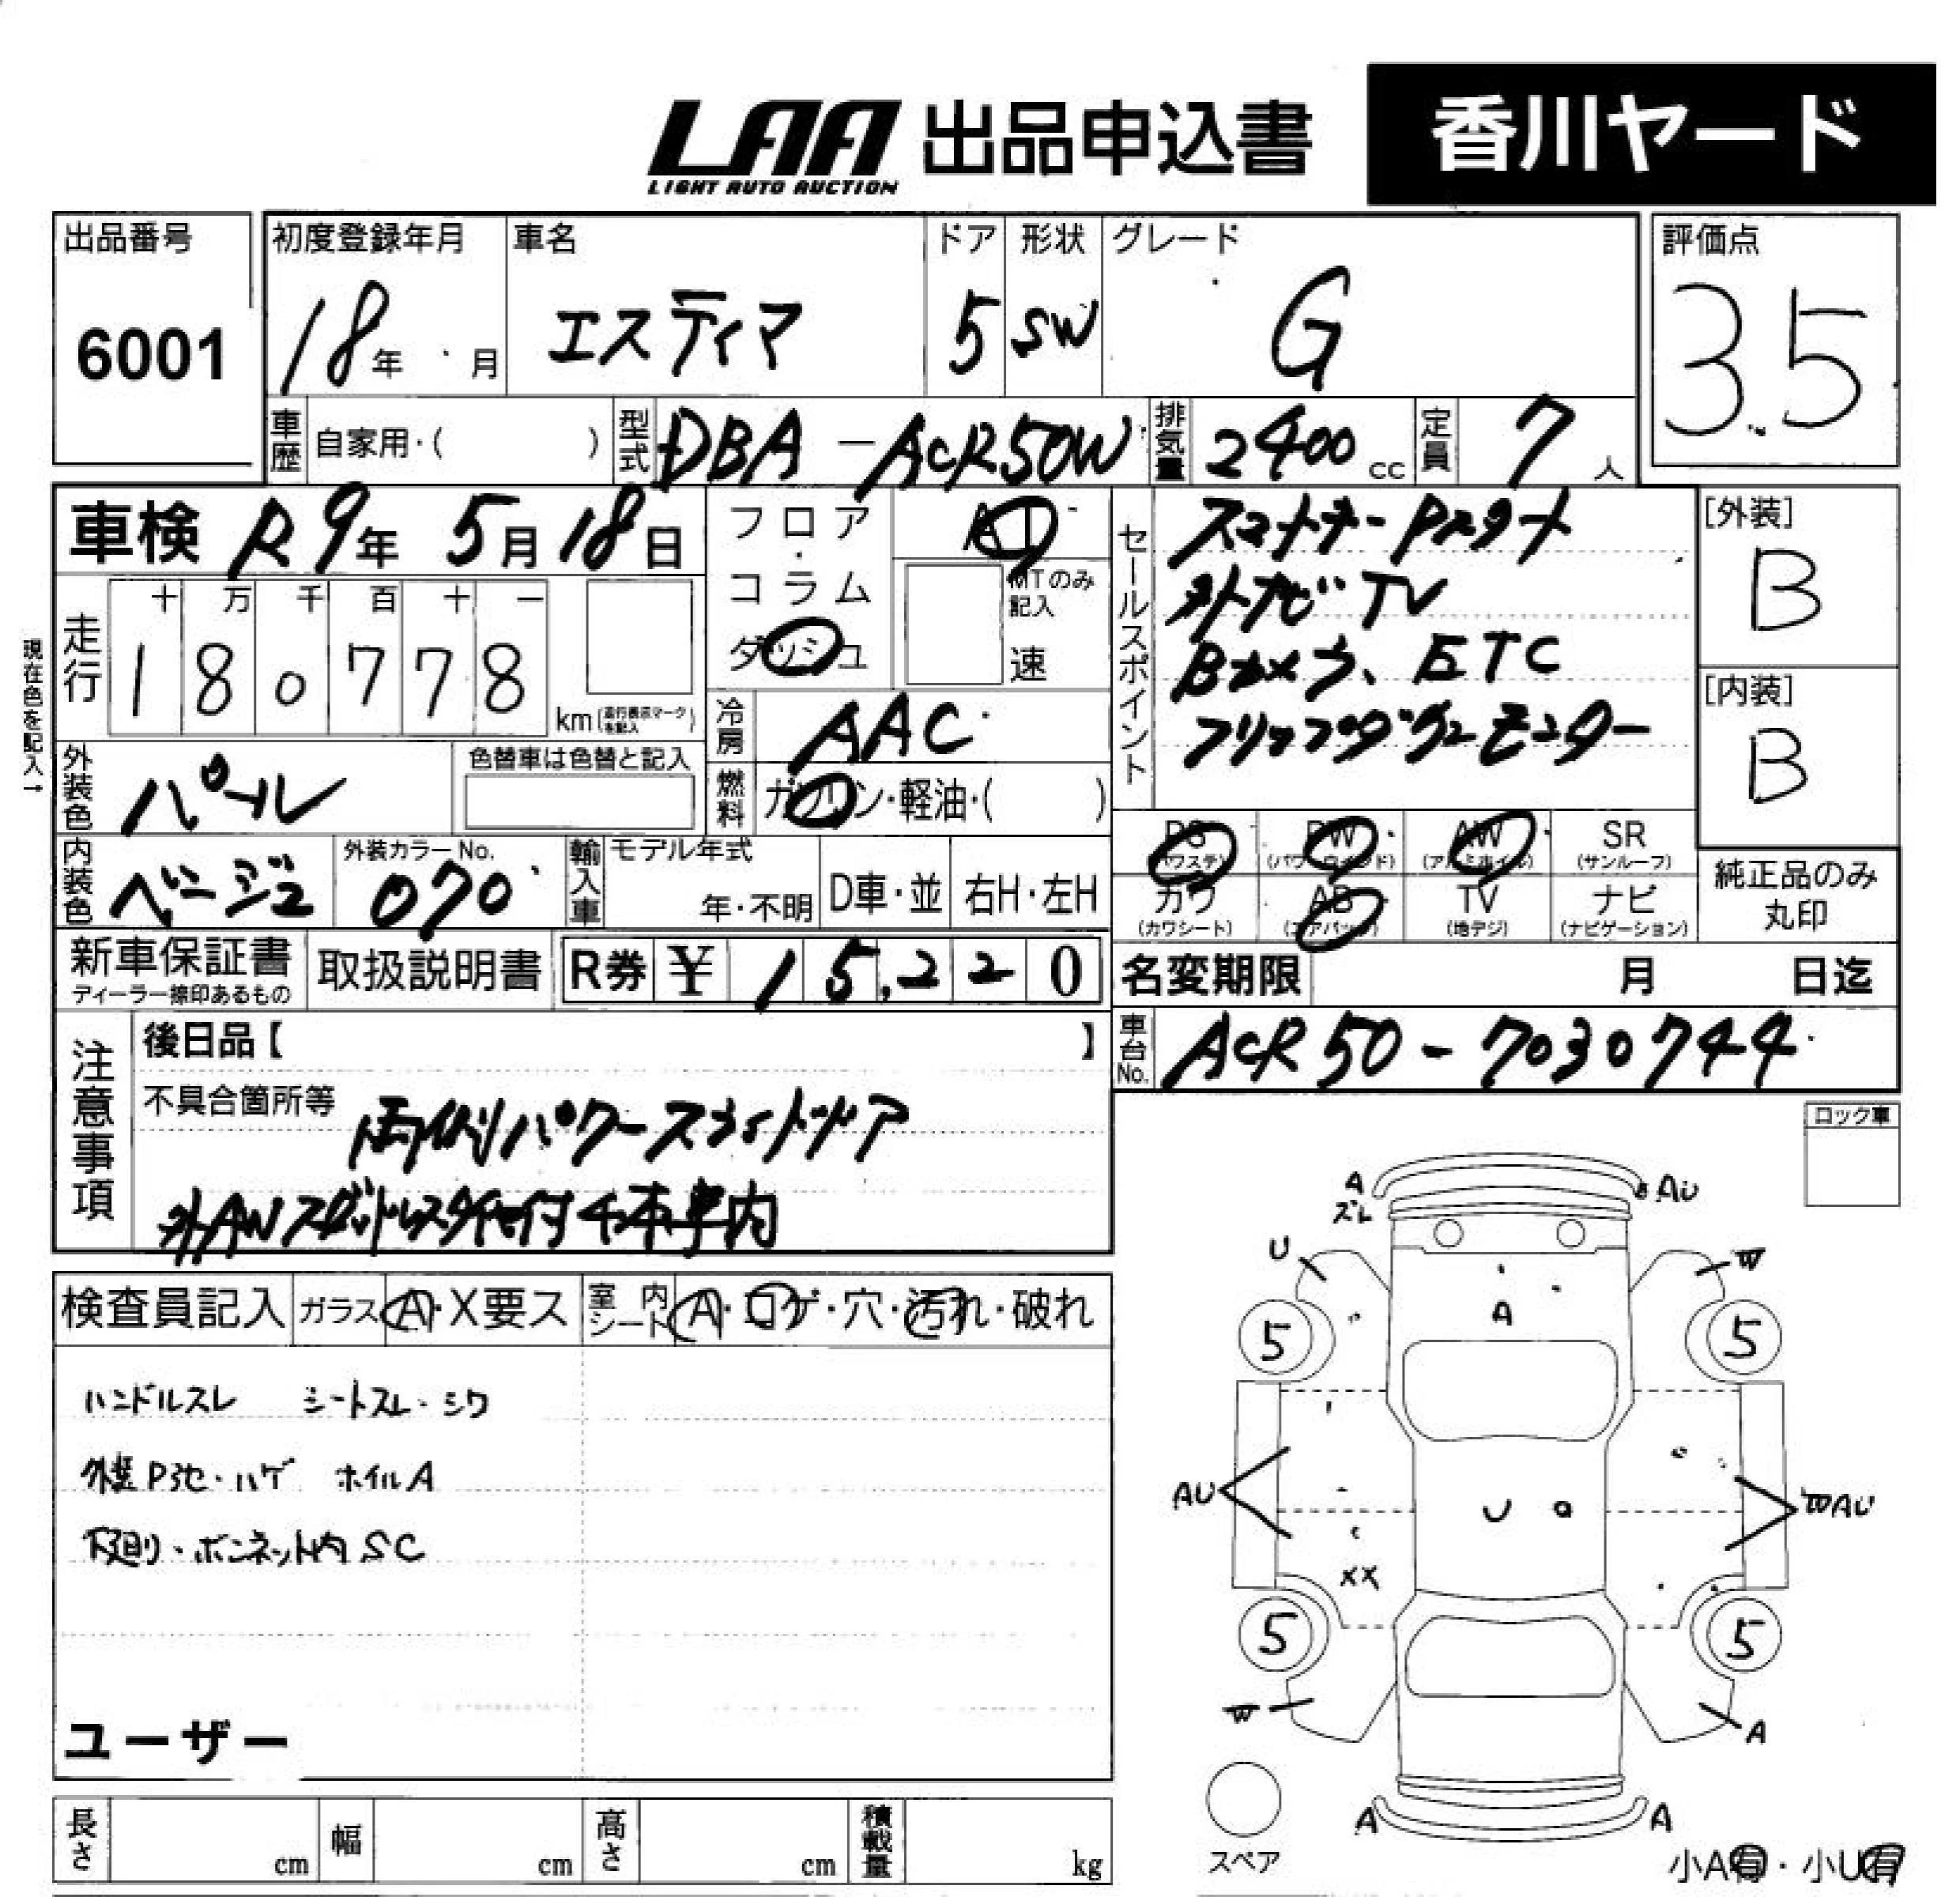 LAA 出品申込書 香川ヤード
LIGHT AUTO AUCTION
出品番号 6001
初度登録年月 18年 月
車名 エスティマ
ドア 5
形状 SW
グレード G
評価点 3.5
車歴 自家用・( )
型式 DBA-ACR50W
排気量 2400cc
定員 7人
車検 R9年 5月 18日
フロア・コラム ダッシュ
AT
MTのみ記入 速
現在色を記入→
走行 十万千百十一
180778 km(走行表示マークを記入)
冷房 AAC
燃料 ガソリン・軽油・( )
外装色 パール
色替車は色替と記入
内装色 ベージュ
外装カラーNo. 070
輸入車 モデル年式 年・不明 D車・並 右H・左H
セールスポイント
スマートキー Pスタート
外ナビ TV
Bカメラ、ETC
フリップダウンモニター
[外装] B
[内装] B
PS (パワステ) PW (パワーウィンド) AW (アルミホイル) SR (サンルーフ)
カワ (カワシート) AB (エアバック) TV (地デジ) ナビ (ナビゲーション)
純正品のみ丸印
新車保証書 ディーラー捺印あるもの
取扱説明書
R券 ¥ 15,220
名変期限 月 日迄
車台No. ACR50-7030744
注意事項
後日品【 】
不具合箇所等
両側パワースライドドア
外AWスタッドレスタイヤ付4本車内
ロック車
検査員記入 ガラス A・X要ス 室内シート A・コゲ・穴・汚れ・破れ
ハンドルスレ シートスレ・シワ
外装Pヨセ・ハゲ ホイルA
下廻り・ボンネット内SC
ユーザー
A
ズレ
AU
U
W
A
5 5
AU
U
WAU
XX
5 5
W
A
A A
スペア
小A有・小U有
長さ cm 幅 cm 高さ cm 積載量 kg